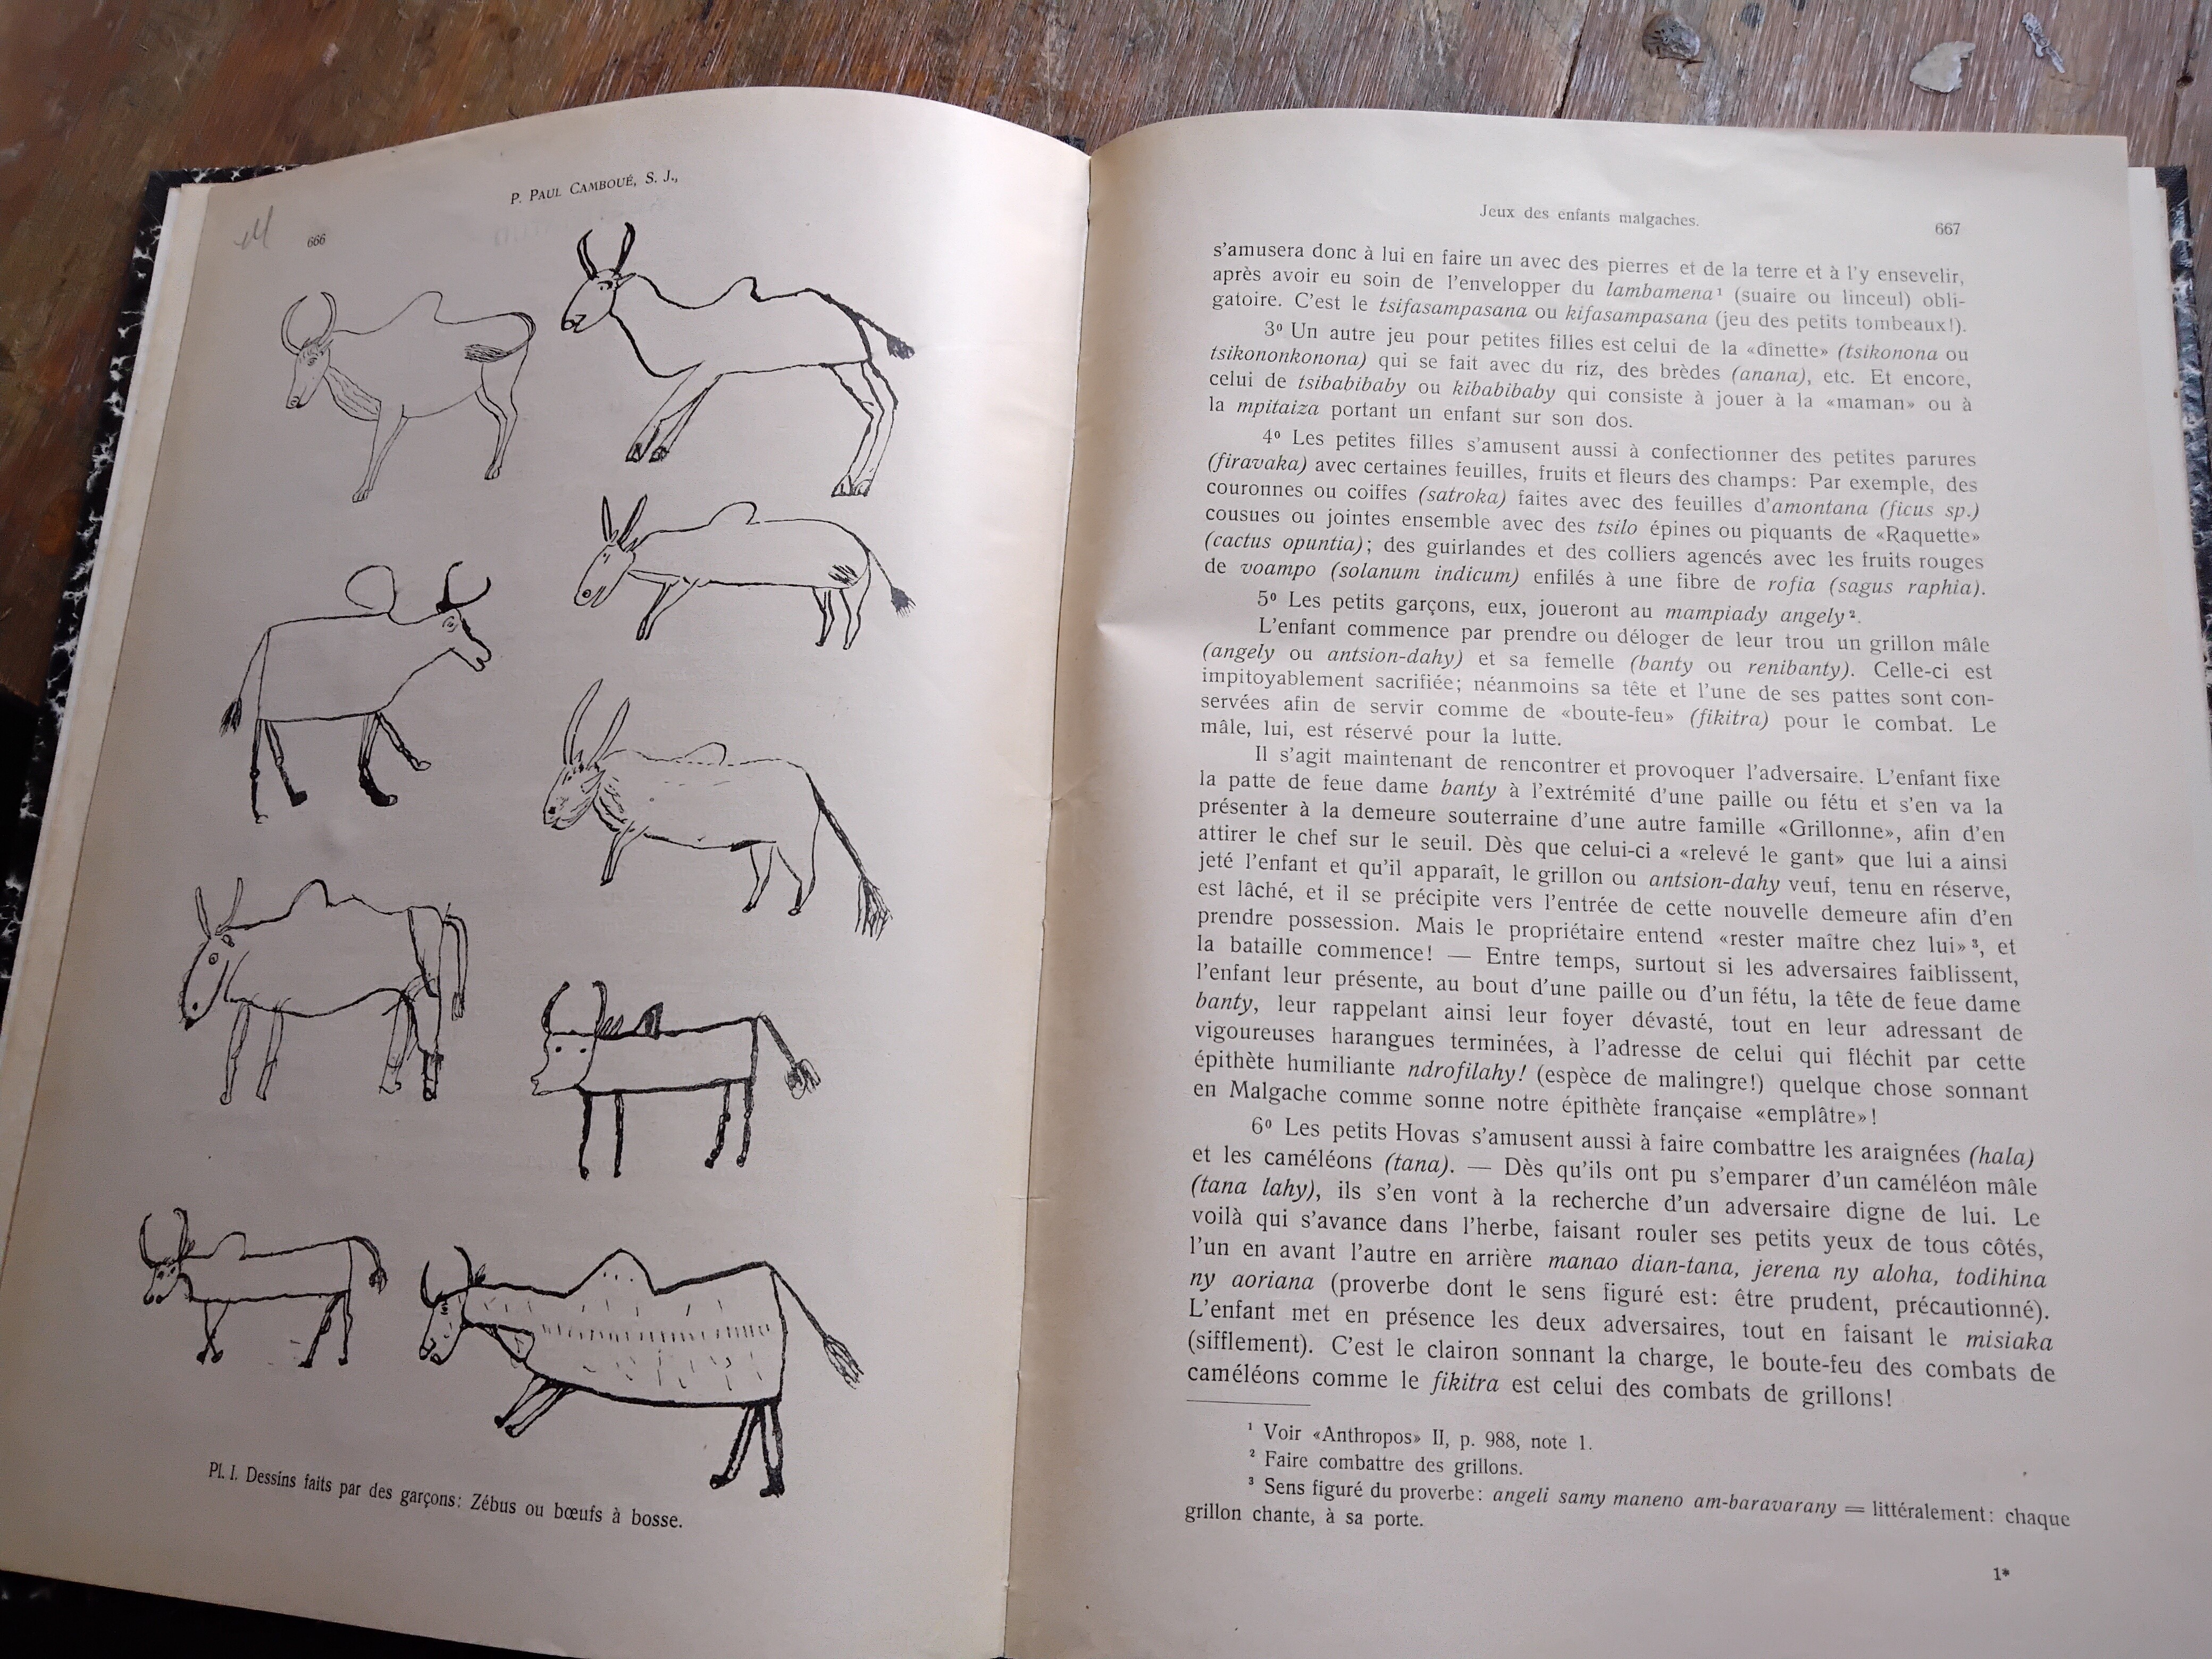 666
P. PAUL CAMBOUÉ, S. J.,
Pl. I. Dessins faits par des garçons: Zébus ou bœufs à bosse.
Jeux des enfants malgaches.
667
s'amusera donc à lui en faire un avec des pierres et de la terre et à l'y ensevelir,
après avoir eu soin de l'envelopper du lambamena¹ (suaire ou linceul) obli-
gatoire. C'est le tsifasampasana ou kifasampasana (jeu des petits tombeaux!).
3⁰ Un autre jeu pour petites filles est celui de la «dînette» (tsikonona ou
tsikononkonona) qui se fait avec du riz, des brèdes (anana), etc. Et encore,
celui de tsibabibaby ou kibabibaby qui consiste à jouer à la «maman» ou à
la mpitaiza portant un enfant sur son dos.
4⁰ Les petites filles s'amusent aussi à confectionner des petites parures
(firavaka) avec certaines feuilles, fruits et fleurs des champs: Par exemple, des
couronnes ou coiffes (satroka) faites avec des feuilles d'amontana (ficus sp.)
cousues ou jointes ensemble avec des tsilo épines ou piquants de «Raquette»
(cactus opuntia); des guirlandes et des colliers agencés avec les fruits rouges
de voampo (solanum indicum) enfilés à une fibre de rofia (sagus raphia).
5⁰ Les petits garçons, eux, joueront au mampiady angely².
L'enfant commence par prendre ou déloger de leur trou un grillon mâle
(angely ou antsion-dahy) et sa femelle (banty ou renibanty). Celle-ci est
impitoyablement sacrifiée; néanmoins sa tête et l'une de ses pattes sont con-
servées afin de servir comme de «boute-feu» (fikitra) pour le combat. Le
mâle, lui, est réservé pour la lutte.
Il s'agit maintenant de rencontrer et provoquer l'adversaire. L'enfant fixe
la patte de feue dame banty à l'extrémité d'une paille ou fétu et s'en va la
présenter à la demeure souterraine d'une autre famille «Grillonne», afin d'en
attirer le chef sur le seuil. Dès que celui-ci a «relevé le gant» que lui a ainsi
jeté l'enfant et qu'il apparaît, le grillon ou antsion-dahy veuf, tenu en réserve,
est lâché, et il se précipite vers l'entrée de cette nouvelle demeure afin d'en
prendre possession. Mais le propriétaire entend «rester maître chez lui»³, et
la bataille commence! — Entre temps, surtout si les adversaires faiblissent,
l'enfant leur présente, au bout d'une paille ou d'un fétu, la tête de feue dame
banty, leur rappelant ainsi leur foyer dévasté, tout en leur adressant de
vigoureuses harangues terminées, à l'adresse de celui qui fléchit par cette
épithète humiliante ndrofilahy! (espèce de malingre!) quelque chose sonnant
en Malgache comme sonne notre épithète française «emplâtre»!
6⁰ Les petits Hovas s'amusent aussi à faire combattre les araignées (hala)
et les caméléons (tana). — Dès qu'ils ont pu s'emparer d'un caméléon mâle
(tana lahy), ils s'en vont à la recherche d'un adversaire digne de lui. Le
voilà qui s'avance dans l'herbe, faisant rouler ses petits yeux de tous côtés,
l'un en avant l'autre en arrière manao dian-tana, jerena ny aloha, todihina
ny aoriana (proverbe dont le sens figuré est: être prudent, précautionné).
L'enfant met en présence les deux adversaires, tout en faisant le misiaka
(sifflement). C'est le clairon sonnant la charge, le boute-feu des combats de
caméléons comme le fikitra est celui des combats de grillons!
¹ Voir «Anthropos» II, p. 988, note 1.
² Faire combattre des grillons.
³ Sens figuré du proverbe: angeli samy maneno am-baravarany = littéralement: chaque
grillon chante, à sa porte.
1*